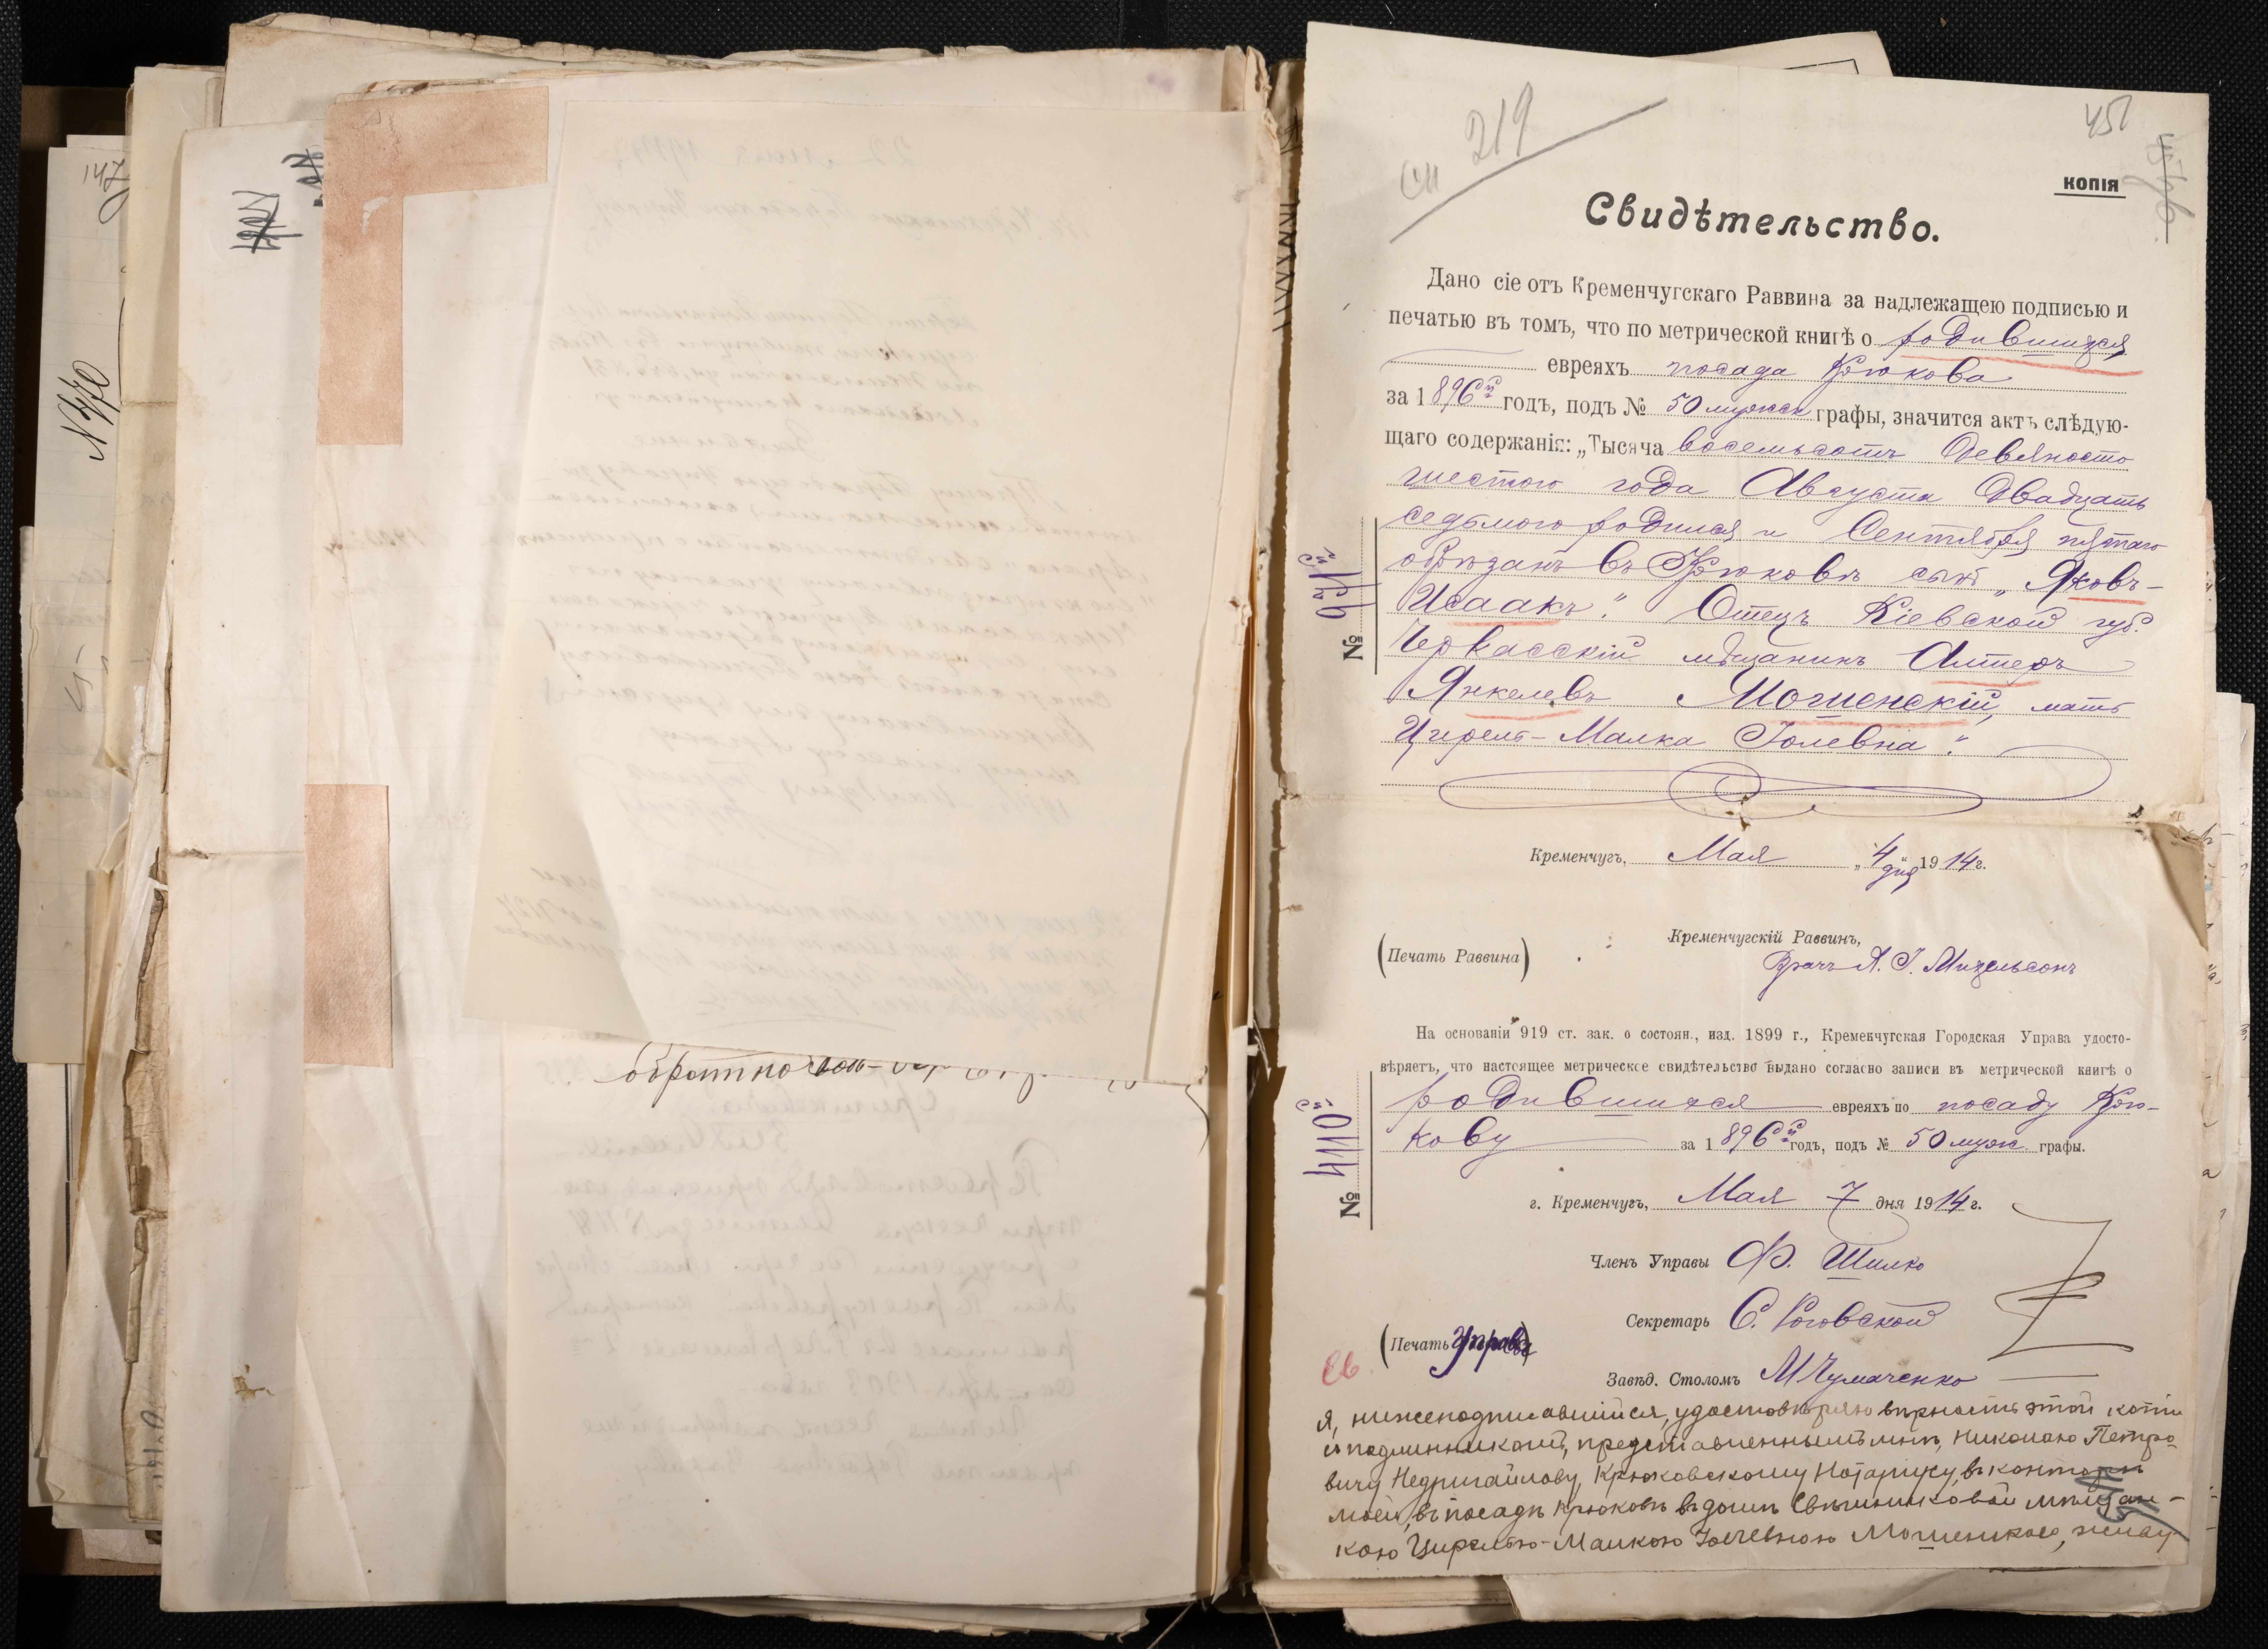 147
N 370
обратно
219
сп
451
КОПІЯ
Свидѣтельство.
Дано сіе отъ Кременчугскаго Раввина за надлежащею подписью и
печатью въ томъ, что по метрической книгѣ о родившихся
евреяхъ посада Крюкова
за 1896й годъ, подъ № 50 мужск графы, значится актъ слѣдую-
щаго содержанія: „Тысяча восемьсотъ девяносто
шестого года Августа двадцать
седьмого родился и Сентября пятаго
обрѣзанъ въ Крюковѣ сынъ „Яковъ-
Исаакъ". Отецъ Кіевской губ.
Черкасскій мѣщанинъ Алтеръ
Янкелевъ Мошенскій, мать
Цирель-Малка Іолевна".
№ 931й
Кременчугъ, Мая „4" дня 1914 г.
Кременчугскій Раввинъ,
(Печать Раввина)
Врачъ А. І. Мизельсонъ
На основаніи 919 ст. зак. о состоян., изд. 1899 г., Кременчугская Городская Управа удосто-
вѣряетъ, что настоящее метрическое свидѣтельство выдано согласно записи въ метрической книгѣ о
родившихся евреяхъ по посаду Крю-
кову за 1896й годъ, подъ № 50 муж графы.
№ 4110й
г. Кременчугъ, Мая 7 дня 1914 г.
Членъ Управы Ф. Шилко
Секретарь С. Роговской
(Печать Управы)
Завѣд. Столомъ М Чумаченко
Я, нижеподписавшійся, удостовѣряю вѣрность этой копіи
съ подлинникомъ, представленнымъ мнѣ, Николаю Петро-
вичу Недригайлову, Крюковскому Нотаріусу, въ конторѣ
моей, въ посадѣ Крюковѣ въ домѣ Свѣшниковой мѣщан-
кою Цирелью-Малкою Іолевною Мошенскою, живу-